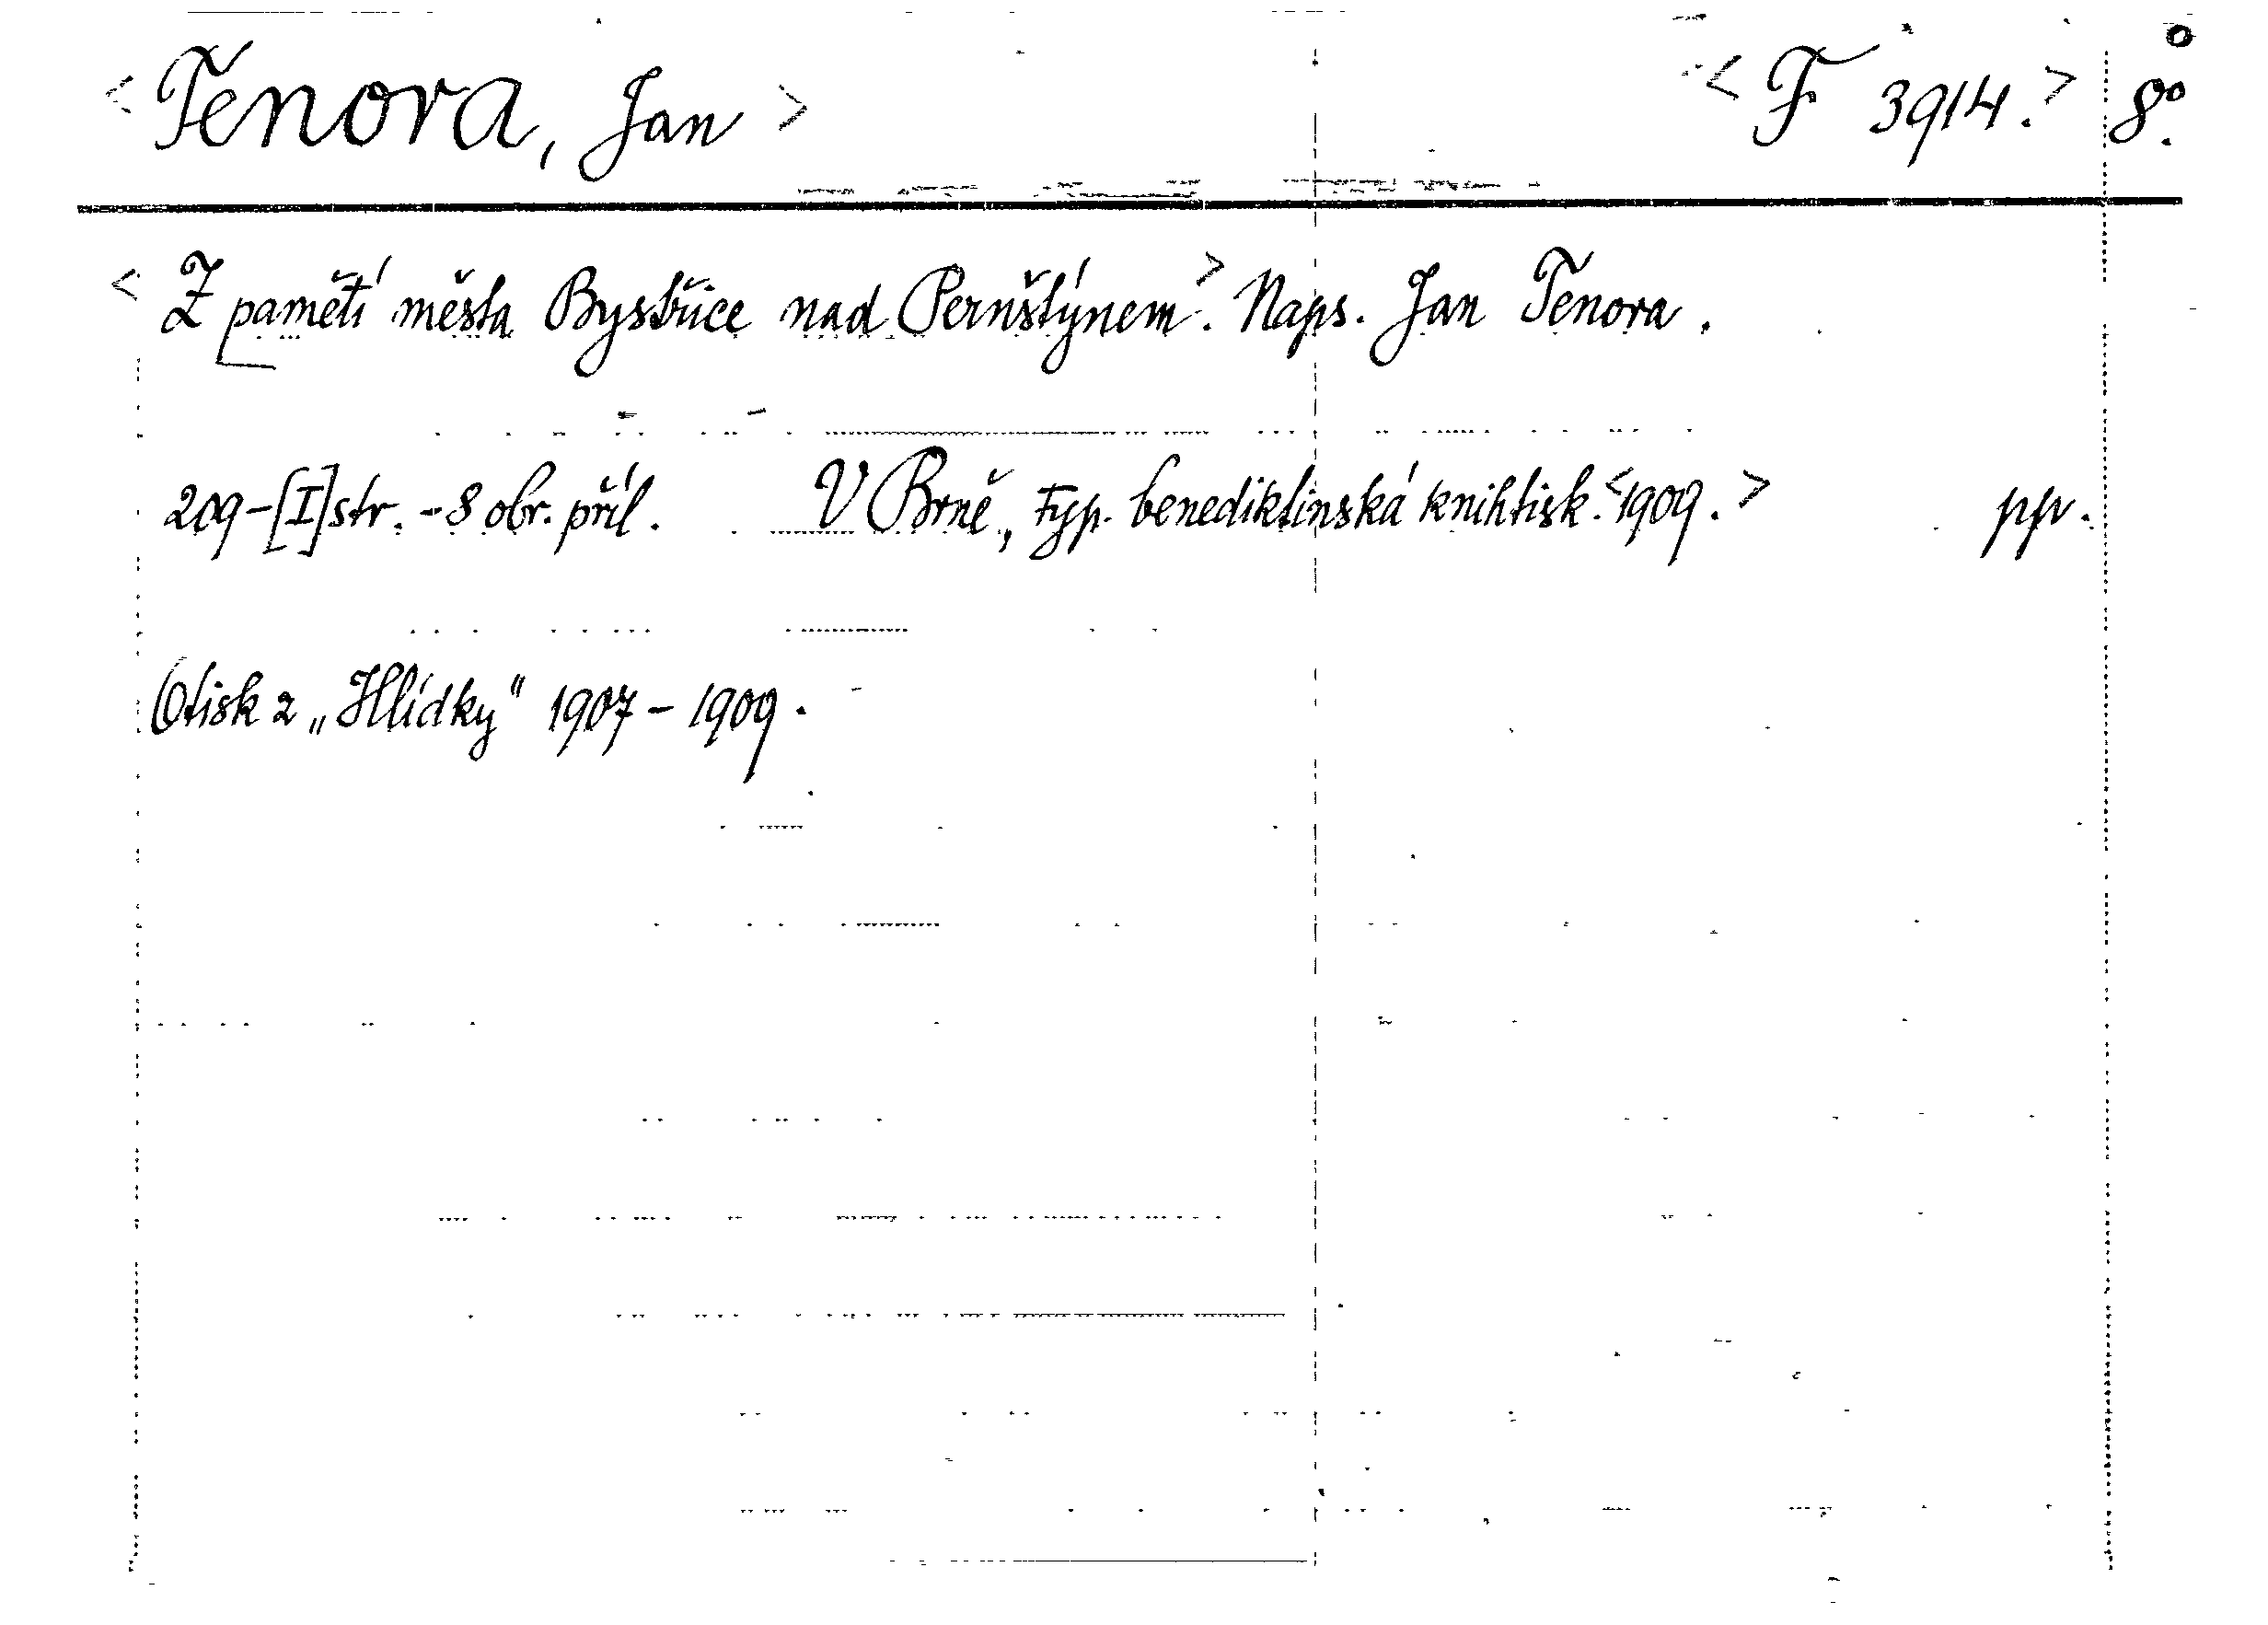 <Tenora, Jan> <F 3914.> 8°.
<Z pamětí města Bystřice nad Pernštýnem>. Naps. Jan Tenora.
209-[I] str. - 8 obr. příl. V Brně, typ. benediktinská knihtisk. <1909.> ppr.
Otisk z „Hlídky" 1907 - 1909.